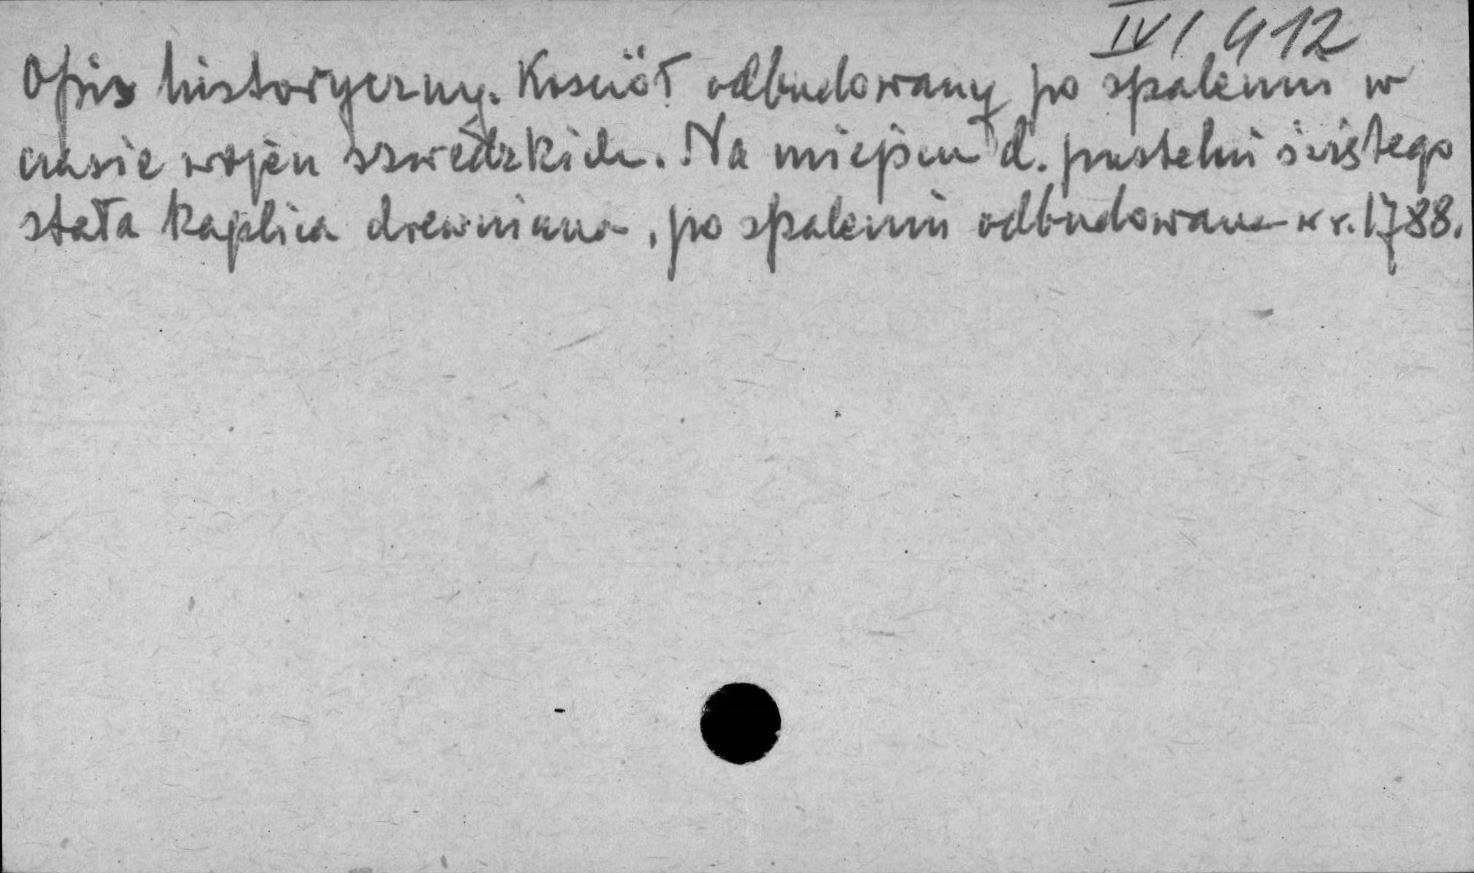 IV/412
Opis historyczny. Kościół odbudowany po spaleniu w
czasie wojen szwedzkich. Na miejscu d. pustelni świętego
stała kaplica drewniana, po spaleniu odbudowana w r. 1788.